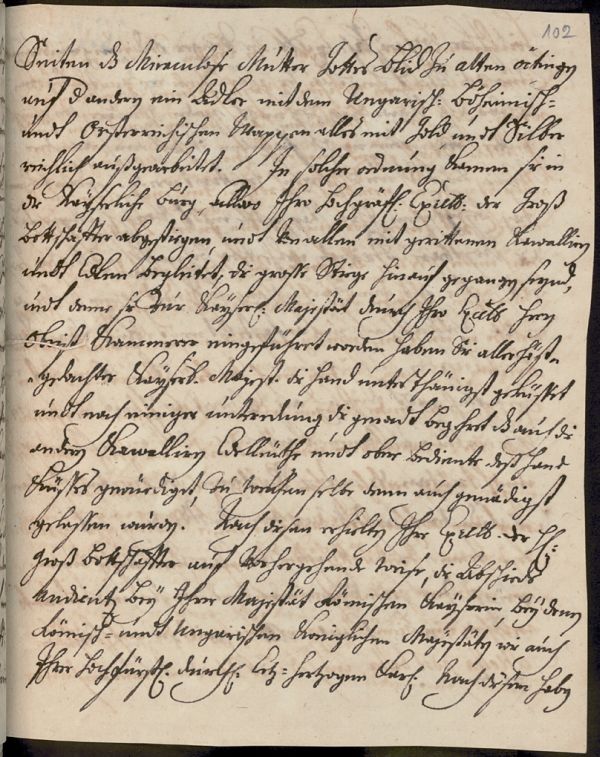 102
Seiten dß Miraculose Mutter Gottes Bild zu alten ötingen
auf d andern ein Adler mit dem Ungarisch: Böheimisch=
undt Oesterreichischen Wappen alles mit Gold, undt Silber
reichlich außgearbeitet. In solcher ordnung kamen sie in
die Kayserliche Burg, allwo Ihro Hochgräffl: Excell: der Groß
Bottschaffter abgestiegen, undt von allen mit gerittenen Kawalliern
undt Edlen begleitet, die grosse Stiege hinauf gegangen seynd,
undt deme sie zur Kayserl: Majestät durch Ihro Excell: Herrn
Obrist Kammerer eingeführet worden haben Sie allerhöst=
=gedachter Kayserl. Mayest. die hand unterthänigst geküsset
undt nach einiger unterredung die gnadt begehret dß auch die
andern Kawalliern Edelleuthe undt ober bediente deß hand
Kusses gewürdiget, zu welchen selbe dann auch gnädigst
gelassen wurden. Nach diesem erhielten Ihr Excell. der H:
Groß Bottschaffter auf vorhergehende weise, die Abschieds
Audientz bey Ihrer Majestät Römischen Kayserin, bey denen
Römisch= undt Ungarischen Königlichen Mayestäten wie auch
Ihrer Hochfürstl. durchl. Ertz=Hertzogen Carl. Nach diesem haben